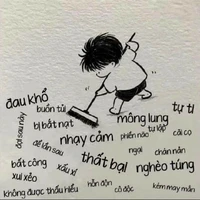 đau khổ
buồn tủi
mông lung
tự ti
đợi sau này
bị bắt nạt
nhạy cảm
phiền não
tự lập
cãi cọ
để lần sau
ngại
chán nản
bất công
xấu xí
thất bại
nghèo túng
xui xẻo
hỗn độn
cô độc
kém may mắn
không được thấu hiểu